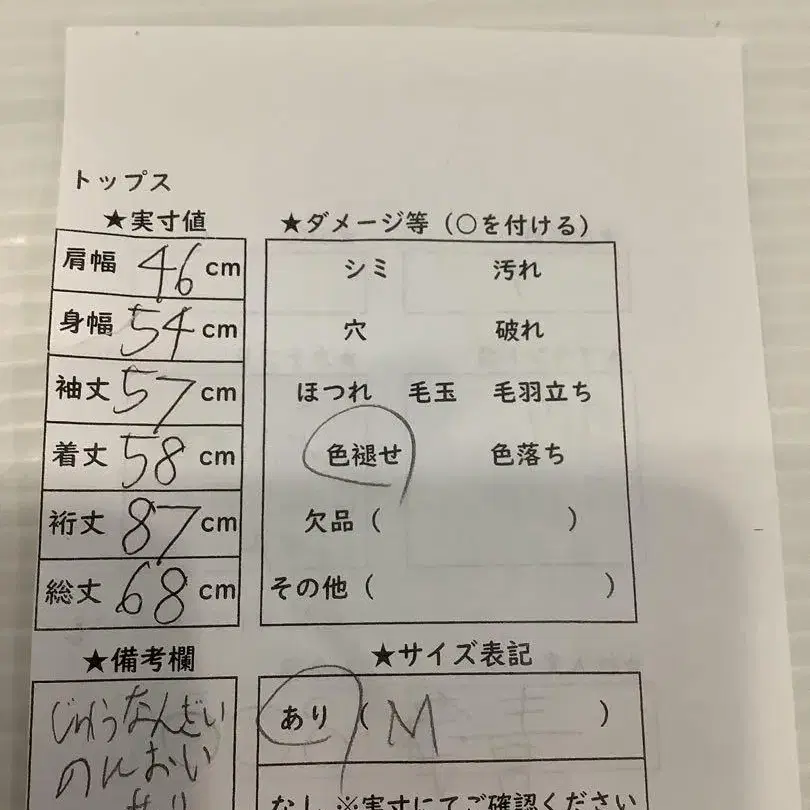 トップス
★実寸値
肩幅 46 cm
身幅 54 cm
袖丈 57 cm
着丈 58 cm
裄丈 87 cm
総丈 68 cm
★ダメージ等（○を付ける）
シミ 汚れ
穴 破れ
ほつれ 毛玉 毛羽立ち
色褪せ 色落ち
欠品（ ）
その他（ ）
★備考欄
じゅうなんざい
のにおい
★サイズ表記
あり（ M ）
なし ※実寸にてご確認ください